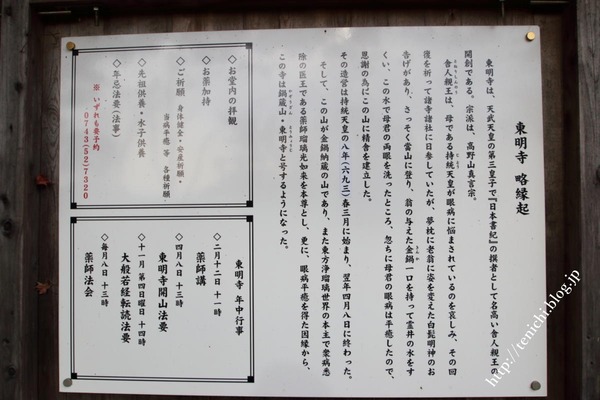 東明寺 略縁起
東明寺は、天武天皇の第三皇子で『日本書紀』の撰者として名高い舎人親王の
開創である。宗派は、高野山真言宗。
舎人親王は、母である持統天皇が眼病に悩まされているのを哀しみ、その回
復を祈って諸寺諸社に日参していたが、夢枕に老翁に姿を変えた白髭明神のお
告げがあり、さっそく當山に登り、翁の与えた金鍋一口を持って霊井の水をす
くい、この水で母君の両眼を洗ったところ、忽ちに母君の眼病は平癒したので、
恩謝の為にこの山に精舎を建立した。
その造営は持統天皇の八年(六九三)春三月に始まり、翌年四月八日に終わった。
そして、この山が金鍋納蔵の山であり、また東方浄瑠璃世界の本主で衆病悉
除の医王である薬師瑠璃光如来を本尊とし、更に、眼病平癒を得た因縁から、
この寺は鍋蔵山・東明寺と号するようになった。
◇お堂内の拝観
◇お薬加持
◇ご祈願 身体健全・安産祈願・
当病平癒 等 各種祈願
◇先祖供養・水子供養
◇年忌法要(法事)
※ いずれも要予約
0743(52)7320
東明寺 年中行事
◇二月十二日 十一時
薬師講
◇四月八日 十三時
東明寺開山法要
◇十一月 第四日曜日 十四時
大般若経転読法要
◇毎月八日 十三時
薬師法会
http://tenichi.blog.jp